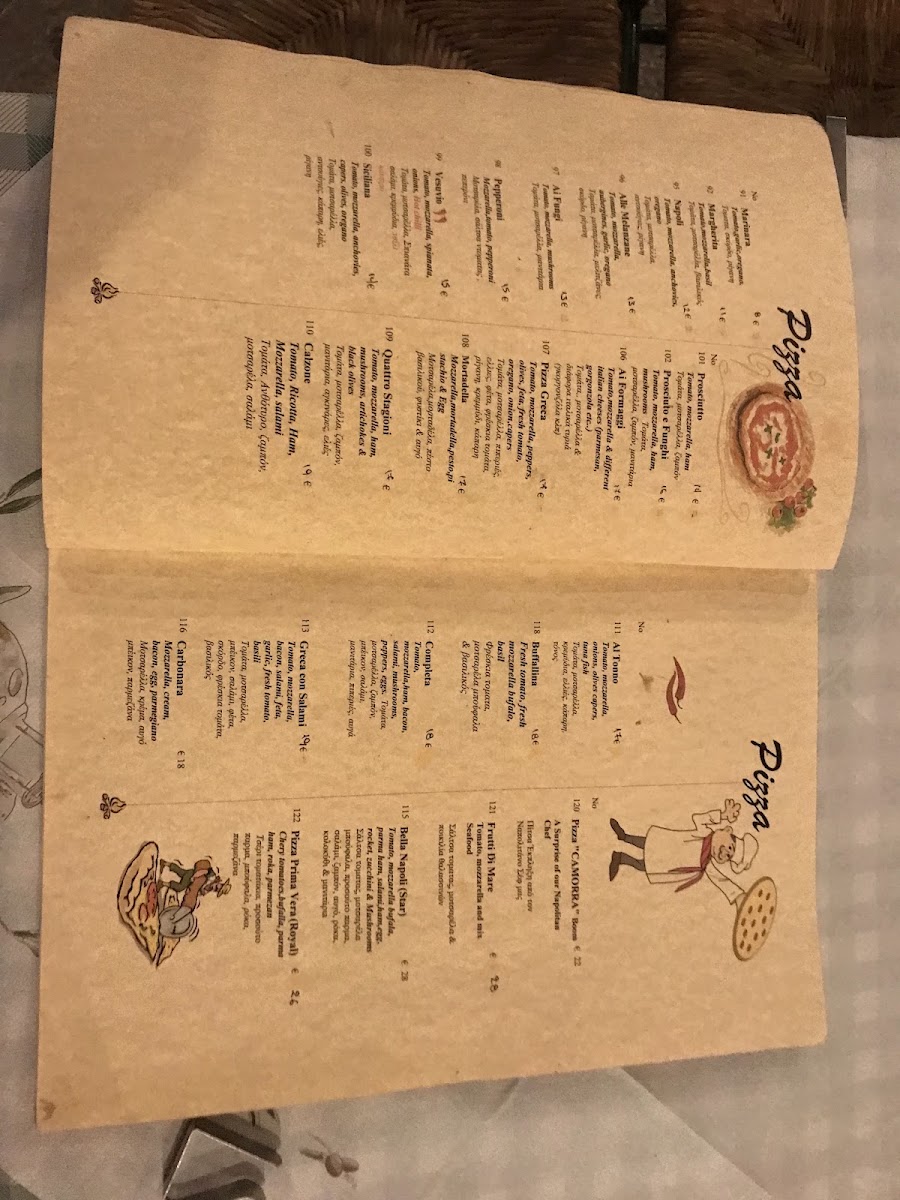 Pizza
No
91 Marinara
Tomato,garlic,oregano, 8 €
Τομάτα, σκορδο, ρίγανη
92 Margherita
Tomato,mozzarella,basil 11 €
Τομάτα, μοτσαρέλλα, βασιλικός
95 Napoli
Tomato, mozzarella, anchovies, 12 €
oregano
Τομάτα, μοτσαρέλλα,
αντσούγιες, ρίγανη
96 Alle Melanzane
Tomato, mozzarella, 13 €
aubergines, garlic, oregano
Τομάτα, μοτσαρέλλα, μελιτζάνες
σκόρδο, ρίγανη
97 Ai Fungi
Tomato, mozzarella, mushrooms 13 €
Τομάτα, μοτσαρέλλα, μανιτάρια
98 Pepperoni
Mozzarella,tomato, pepperoni 15 €
Μοτσαρέλα, σάλτσα τοματας,
πεπερόνι
99 Vesuvio
Tomato, mozzarella, spianata, 15 €
onions,
Τομάτα, μοτσαρέλλα, Σπιανάτα
σαλάμι, κρεμμύδια,
100 Siciliana
Tomato, mozzarella, anchovies, 14 €
capers, olives, oregano
Τομάτα, μοτσαρέλλα,
αντσούγιες, κάπαρη, ελιές,
ρίγανη
No
101 Prosciutto
Tomato, mozzarella, ham 14 €
Τομάτα, μοτσαρέλλα, ζαμπόν
102 Prosciuto e Funghi
Tomato, mozzarella, ham, 15 €
mushrooms Τομάτα,
μοτσαρέλλα, ζαμπόν, μανιτάρια
106 Ai Formaggi
Tomato,mozzarella & different 17 €
italian cheeses (parmesan,
gorgonzola etc..)
Τομάτα, μοτσαρέλλα &
διάφορα ιταλικά τυριά
107 Pizza Greca
Tomato, mozzarella, peppers, 17 €
olives, feta, fresh tomato,
oregano, onion,capers
Τομάτα, μοτσαρέλλα, πιπεριές,
ελίες, φέτα, φρέσκια τομάτα,
ρίγανη, κρεμμύδι, κάπαρη
108 Mortadella
Mozzarella,mortadella,pesto,pi 17 €
stachio & Egg
Μοτσαρέλα,μορταδέλα, πέστο
βασιλικού, φιστίκι & αυγό
109 Quattro Stagioni
Tomato, mozzarella, ham, 17 €
mushrooms, artichokes &
black olives
Τομάτα, μοτσαρέλλα, ζαμπόν,
μανιτάρια, αγκινάρες, ελιές
110 Calzone
Tomato, Ricotta, Ham, 19 €
Mozzarella, salami
Τομάτα, Ανθότυρο, ζαμπόν,
μοτσαρέλα, σαλάμι
Pizza
No
111 Al Tonno
Tomato, mozzarella, 17 €
onions, olives capers,
tuna fish
Τομάτα, μοτσαρέλλα,
κρεμύδια, ελλιές, κάπαρη,
τόνος
118 Buffallina
Fresh tomato, fresh 18 €
mozzarella bufalo,
basil
Φρέσκια τοματα,
μοτσαρέλα μπούφαλα
& βασιλικός
112 Completa
Tomato, 18 €
mozzarella,ham, bacon,
salami, mushrooms,
peppers, eggs. Τομάτα,
μοτσαρέλλα, ζαμπόν,
μπέικον, σαλάμι,
μανιτάρια, πιπεριές, αυγά
113 Greca con Salami
Tomato, mozzarella, 19 €
bacon, salami, feta,
garlic, fresh tomato,
basili
Τομάτα, μοτσαρέλλα,
μπέικον, σαλάμι, φέτα,
σκόρδο, φρέσκια τομάτα,
βασιλικός
116 Carbonara
Mozzarella, cream, € 18
bacon, egg, parmegiano
Μοτσαρέλλα, κρέμα, αυγό
μπέικον, παρμεζάνα
No
120 Pizza "CAMORRA" Boom € 22
A Surprise of our Napolitan
Chef
Πίτσα Έκπληξη από τον
Ναπολιτάνο Σέφ μας
121 Frutti Di Mare € 28
Tomato, mozzarella and mix
Seafood
Σάλτσα τοματας, μοτσαρέλα &
ποικιλία θαλασσινών
115 Bella Napoli (Star) € 28
Tomato, mozzarella bufala,
parma ham, salami,ham,egg,
rocket, zucchini & Mushrooms
Σάλτσα τομάτας, μοτσαρέλα
μπούφαλα, προσούτο πάρμα,
σαλάμι, ζαμπόν, αυγό, ρόκα,
κολοκύθι & μανιτάρια
122 Pizza Prima Vera (Royal) € 26
Chery tomatoes,bufalla, parma
ham, roka, parmezan
Τσέρι τοματίνια, προσούτο
παρμα, μπούφαλα, ρόκα,
παρμεζάνα